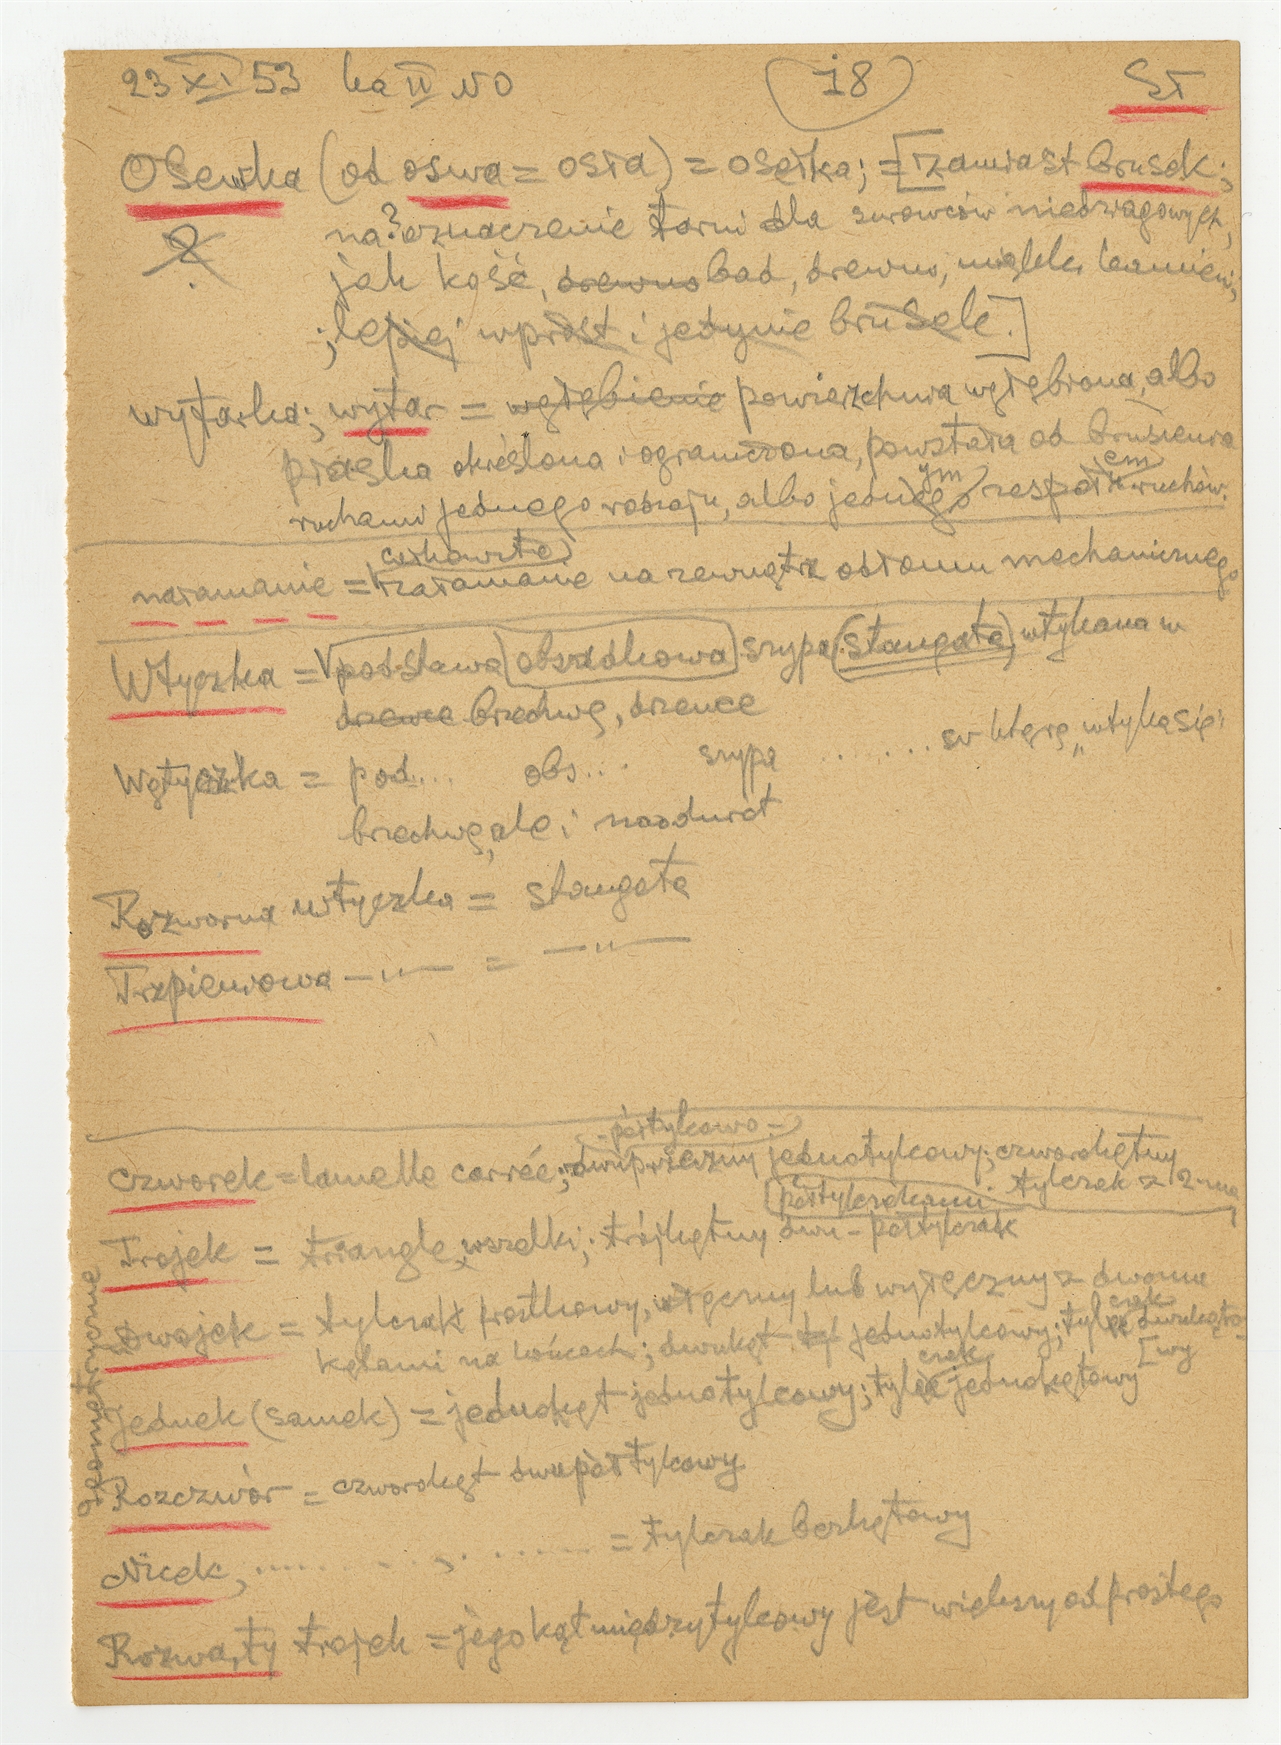 23 XI 53 ka IV NO 18 ST
Osewka (od oswa = osła) = osełka; = [zamiast brusek;
na? oznaczenie tarni dla surowców niedźwigowych,
jak kość, drewno bad, drewno, miękki kamień,
; lepiej wprost i jedynie brusek.]
?
wytarka; wytar = wgłębienie powierzchwa wgłębiona, albo
płaska określona i ograniczona, powstała od bruszenia
ruchami jednego rodzaju, albo jednego ym zespołem ruchów.
całkowite
nałamanie = załamanie na zewnątrz odłomu mechanicznego
Wtyczka = podstawa obsadkowa szypa (stangate), wtykana w
drzewce brzechwę, drzewce
Wętyczka = pod... obs... szypa ....... w którą „wtyka się"
brzechwę, ale i naodwrót
Rozworna wtyczka = stangate
Trzpieniowa —"— = —"—
-półtylcowo-
Czworek = lamelle carrée; dwuprzeczny jednotylcowy; czworokątny
tylczak z 2-ma
półtylczakami
Trojek = triangle wszelki; trójkątny dwu-półtylczak
Dwojek = tylczak prostkowy, włęczny lub wyłęczny z dwoma
kątami na końcach; dwukąt jednotylcowy; tylczak dwukąto-
[wy
Jednek (samek) = jednokąt jednotylcowy; tylczak jednokątowy
Rozczwór = czworokąt dwupółtylcowy
Nicek, ............ = tylczak bezkątowy
Rozwarty trojek = jego kąt międzytylcowy jest większy od prostego
geometryczne